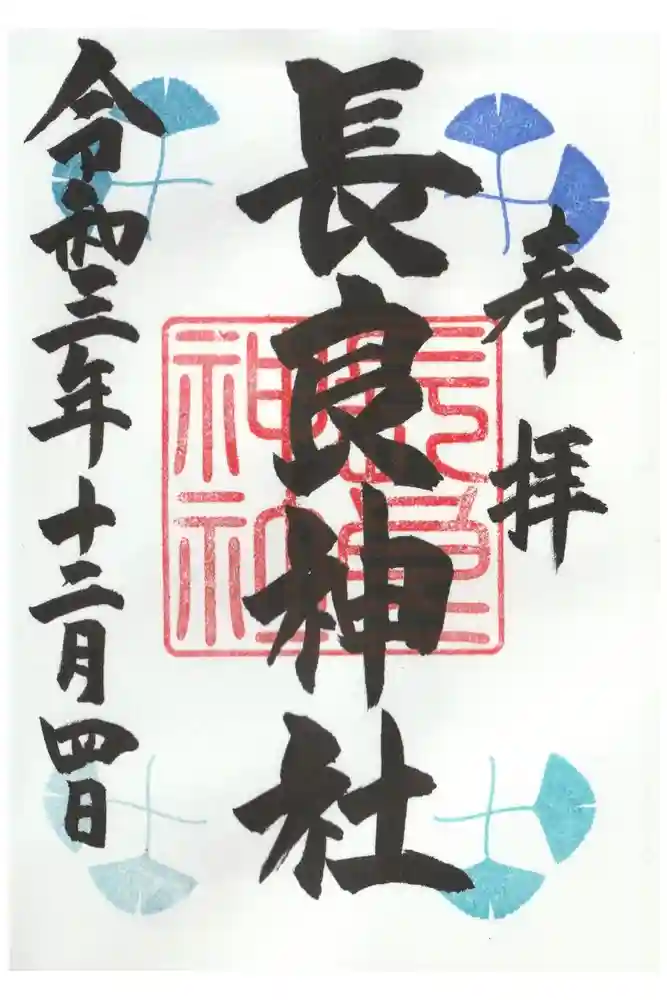 奉拝
長良神社
長良神社
令和三年十二月四日